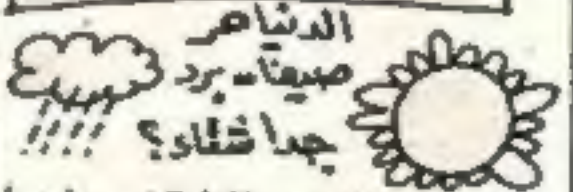 الدنيا حر
صيفا.. برد
جدا شتاء؟